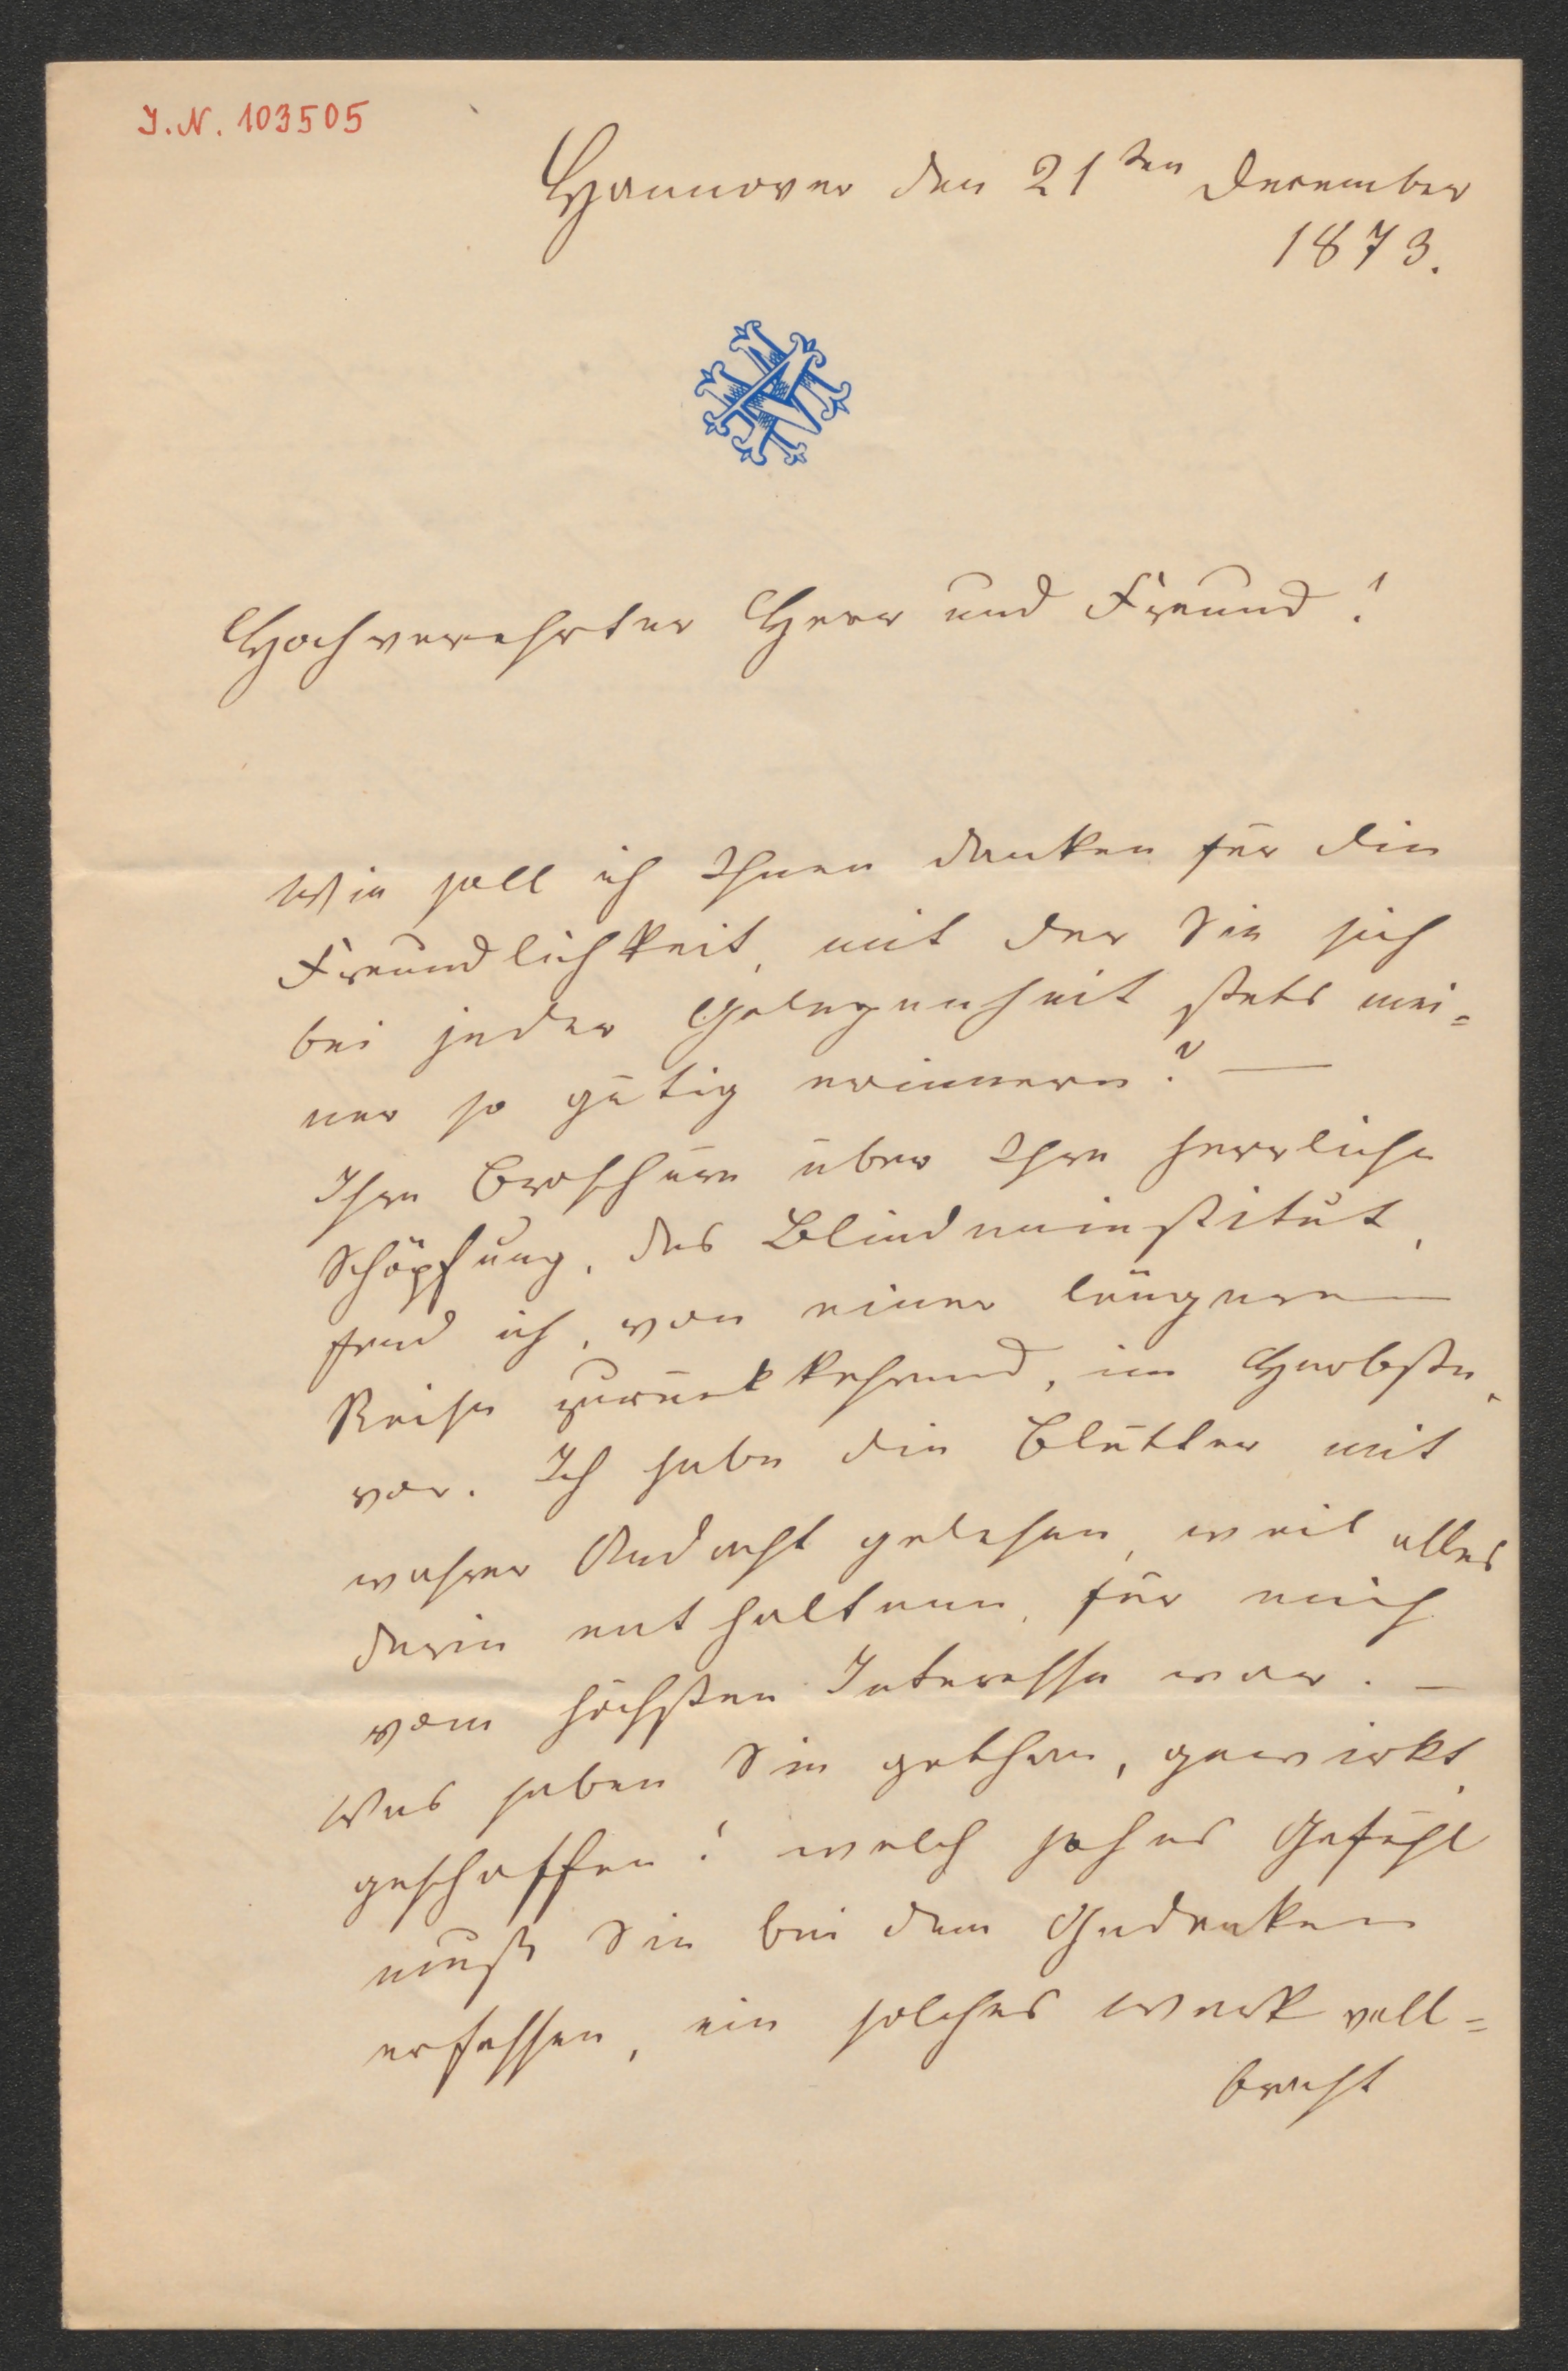 J.N. 103505
Hannover den 21ten December
1873.
Hochverehrter Herr und Freund!
Wie soll ich Ihnen danken für die
Freundlichkeit, mit der Sie sich
bei jeder Gelegenheit stets mei=
ner so gütig erinnern? —
Ihre Broschüre über Ihre herrliche
Schöpfung, das Blindeninstitut,
fand ich, von einer längeren
Reise zurückkehrend, im Herbste,
vor. Ich habe die Blätter mit
wahrer Andacht gelesen, weil alles
darin enthaltene, für mich
vom höchsten Interesse war. —
Was haben Sie gethan, gewirkt,
geschaffen! welch hohes Gefühl
muß Sie bei dem Gedanken
erfassen, ein solches Werk voll=
bracht